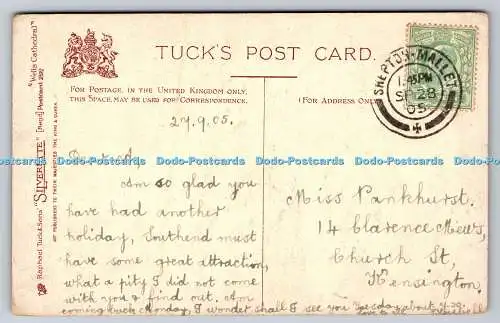 TUCK'S POST CARD.
FOR POSTAGE IN THE UNITED KINGDOM ONLY,
THIS SPACE MAY BE USED FOR CORRESPONDENCE.
(FOR ADDRESS ONLY.)
Raphael Tuck & Sons' "SILVERETTE" (Regd) Postcard "Wells Cathedral"
ART PUBLISHERS TO THEIR MAJESTIES THE KING & QUEEN.
SHEPTON-MALLET
SP 28
05
27.9.05.
Am so glad you
have had another
holiday, Southend must
have some great attraction,
what a pity I did not come
with you & find out. Am
coming back Monday, I wonder shall I see you Tuesday about
Miss Pankhurst.
14 Clarence Mews,
Church St,
Kensington,
Dodo-Postcards Dodo-Postcards Dodo-Postcards Dodo-Postcards Dodo-Postcards Dodo-Postcards